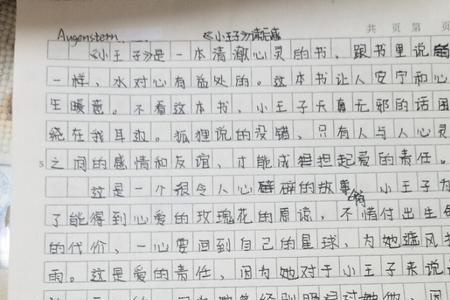 Augenstern 《小王子》读后感
共 页 第 页
《小王子》是一本清澈心灵的书，跟书里说
一样，水对心有益处的。这本书让人安宁和心
生暖意。不看这本书，小王子天真无邪的话围
绕在我耳边。狐狸说的没错，只有人与人心灵
5 之间的感情和友谊，才能成担担起爱的责任。
这是一个很令人心碎的故事，小王子为
了能得到心爱的玫瑰花的原谅，不惜付出生命
的代价，一心要回到自己的星球，为她遮风
雨。这是爱的责任，因为她对于小王子来说